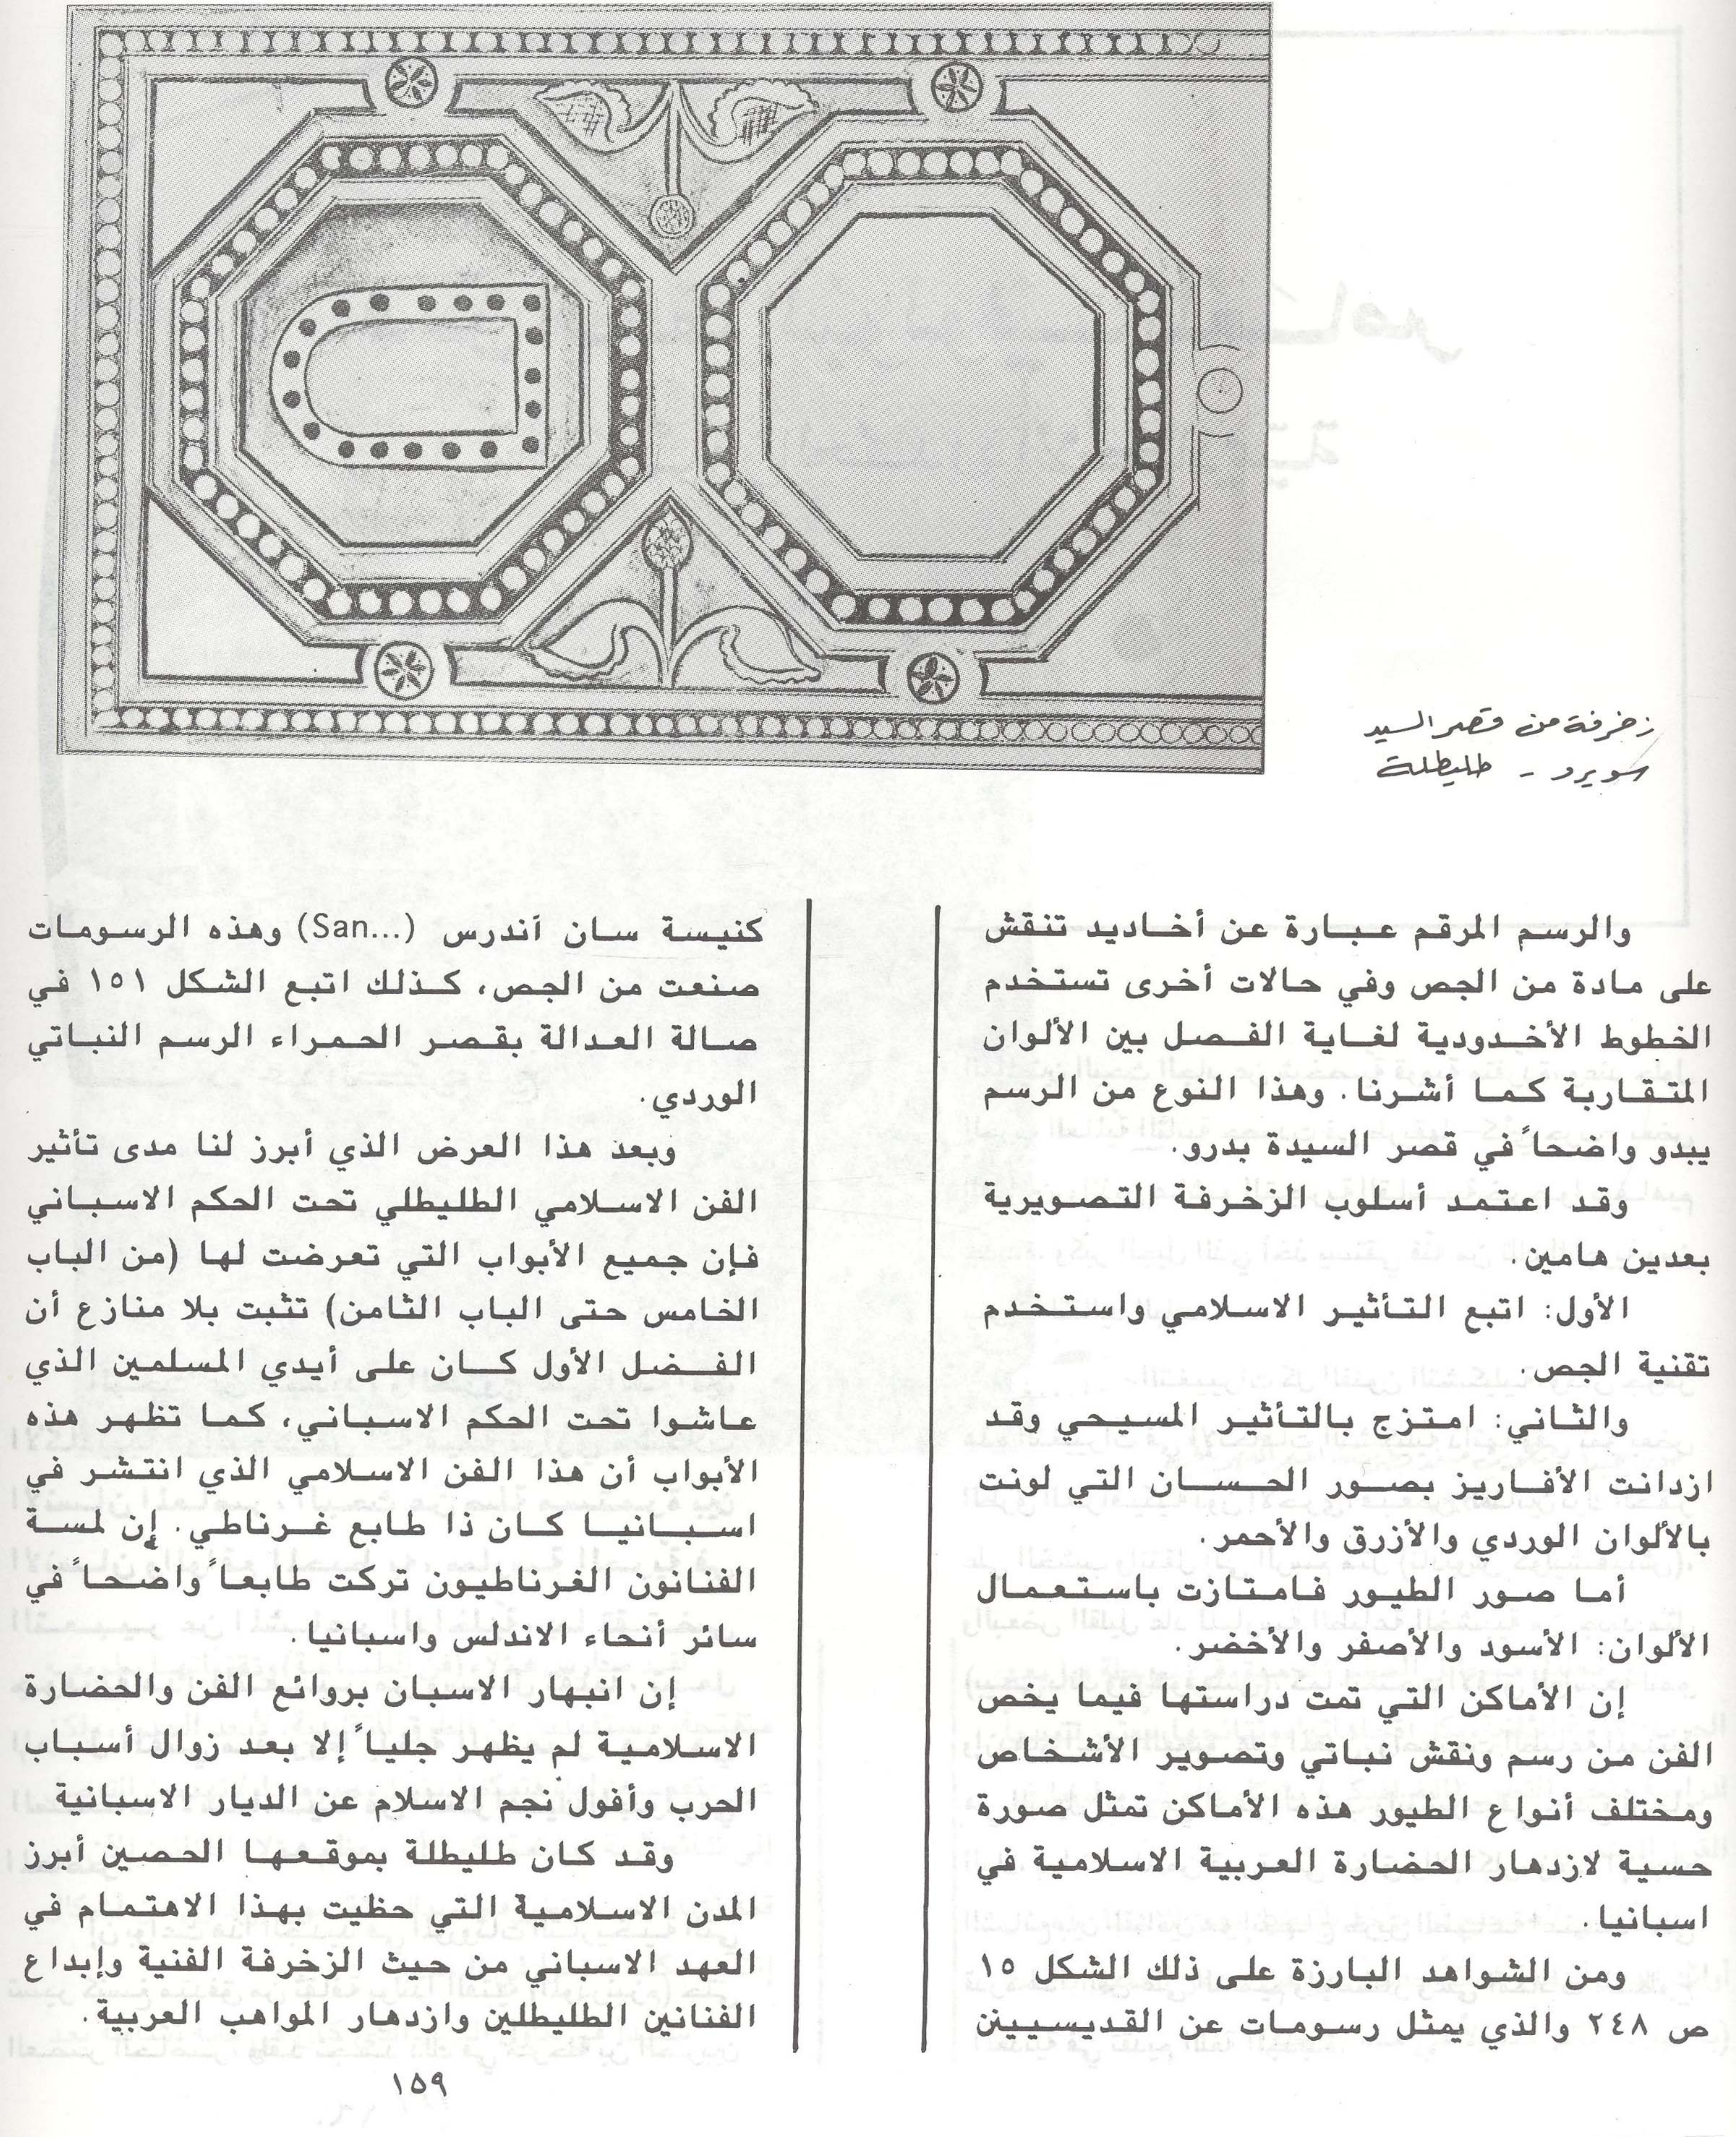 زخرفة من قصر السيد
سويرو - طليطلة
والرسم المرقم عبارة عن أخاديد تنقش
على مادة من الجص وفي حالات أخرى تستخدم
الخطوط الأخدودية لغاية الفصل بين الألوان
المتقاربة كما أشرنا. وهذا النوع من الرسم
يبدو واضحاً في قصر السيدة بدرو.
وقد اعتمد أسلوب الزخرفة التصويرية
بعدين هامين.
الأول: اتبع التأثير الاسلامي واستخدم
تقنية الجص.
والثاني: امتزج بالتأثير المسيحي وقد
ازدانت الأفاريز بصور الحسان التي لونت
بالألوان الوردي والأزرق والأحمر.
أما صور الطيور فامتازت باستعمال
الألوان: الأسود والأصفر والأخضر.
إن الأماكن التي تمت دراستها فيما يخص
الفن من رسم ونقش نباتي وتصوير الأشخاص
ومختلف أنواع الطيور هذه الأماكن تمثل صورة
حسية لازدهار الحضارة العربية الاسلامية في
اسبانيا.
ومن الشواهد البارزة على ذلك الشكل ١٥
ص ٢٤٨ والذي يمثل رسومات عن القديسيين
كنيسة سان آندرس (San...) وهذه الرسومات
صنعت من الجص، كذلك اتبع الشكل ١٥١ في
صالة العدالة بقصر الحمراء الرسم النباتي
الوردي.
وبعد هذا العرض الذي أبرز لنا مدى تأثير
الفن الاسلامي الطليطلي تحت الحكم الاسباني
فإن جميع الأبواب التي تعرضت لها (من الباب
الخامس حتى الباب الثامن) تثبت بلا منازع أن
الفضل الأول كان على أيدي المسلمين الذي
عاشوا تحت الحكم الاسباني، كما تظهر هذه
الأبواب أن هذا الفن الاسلامي الذي انتشر في
اسبانيا كان ذا طابع غرناطي. إن لمسة
الفنانون الغرناطيون تركت طابعاً واضحاً في
سائر أنحاء الاندلس واسبانيا.
إن انبهار الاسبان بروائع الفن والحضارة
الاسلامية لم يظهر جلياً إلا بعد زوال أسباب
الحرب وأفول نجم الاسلام عن الديار الاسبانية
وقد كان طليطلة بموقعها الحصين أبرز
المدن الاسلامية التي حظيت بهذا الاهتمام في
العهد الاسباني من حيث الزخرفة الفنية وإبداع
الفنانين الطليطلين وازدهار المواهب العربية.
١٥٩